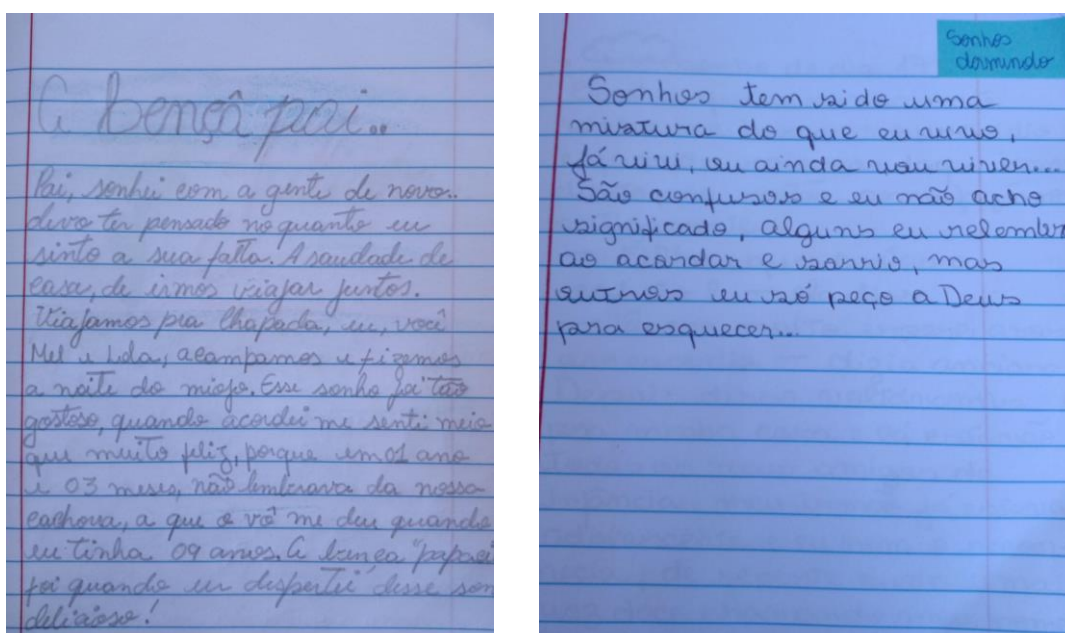 A bençâ pai...
Pai, sonhei com a gente de novo..
devo ter pensado no quanto eu
sinto a sua falta. A saudade de
casa, de irmos viajar juntos.
Viajamos pra Chapada, eu, você
Mel e Lola, acampamos e fizemos
a noite do miojo. Esse sonho foi tão
gostoso, quando acordei me senti meio
que muito feliz, porque em 01 ano
e 03 meses, não lembrava da nossa
cachoua, a que o vô me deu quando
eu tinha 09 anos. A bença "papai
foi quando eu despertei desse son
delicioso!
Sonhos
dormindo
Sonhos tem sido uma
mistura do que eu vivo,
já vivi, ou ainda vou viver...
São confusos e eu não acho
significado, alguns eu relembr
ao acordar e sorrio, mas
outros eu só peço a Deus
pra esquecer...